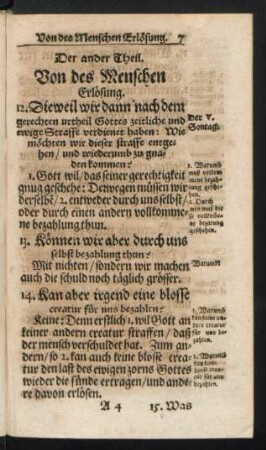 Von des Menschen Erlösung. 7
Der ander Theil.
Von des Menschen
Erlösung.
12. Dieweil wir dann nach dem
gerechten urtheil Gottes zeitliche und
ewige Straffe verdienet haben: Wie
möchten wir dieser straffe entge-
hen / und wiederumb zu gna-
den kommen?
Der V.
Sontag.
1. Gott wil / das seiner gerechtigkeit
gnug geschehe: Deswegen müssen wir
derselbē / 2. entweder durch uns selbst /
oder durch einen andern vollkomme-
ne bezahlung thun.
1. Warumb
mus vollkom
men bezah-
lung gesche-
hen.
2. Durch
wen mus die
se vollköm̄e-
ne bezalung
geschehen.
13. Können wir aber durch uns
selbst bezahlung thun?
Mit nichten / sondern wir machen
auch die schuld noch täglich grösser.
Warumb?
14. Kan aber irgend eine blosse
creatur für uns bezahlen?
Keine: Denn erstlich 1. wil Gott an
keiner andern creatur straffen / dasl
der mensch verschuldet hat. Zum an-
dern / so 2. kan auch keine blosse crea-
tur den last des ewigen zorns Gottes
wieder die sünde ertragen / und ande
re davon erlösen.
1. Warumb
kan keine an
dere creatur
für uns be-
zahlen.
2. Warumb
kan keine
blosse crea-
A 4 15. Was